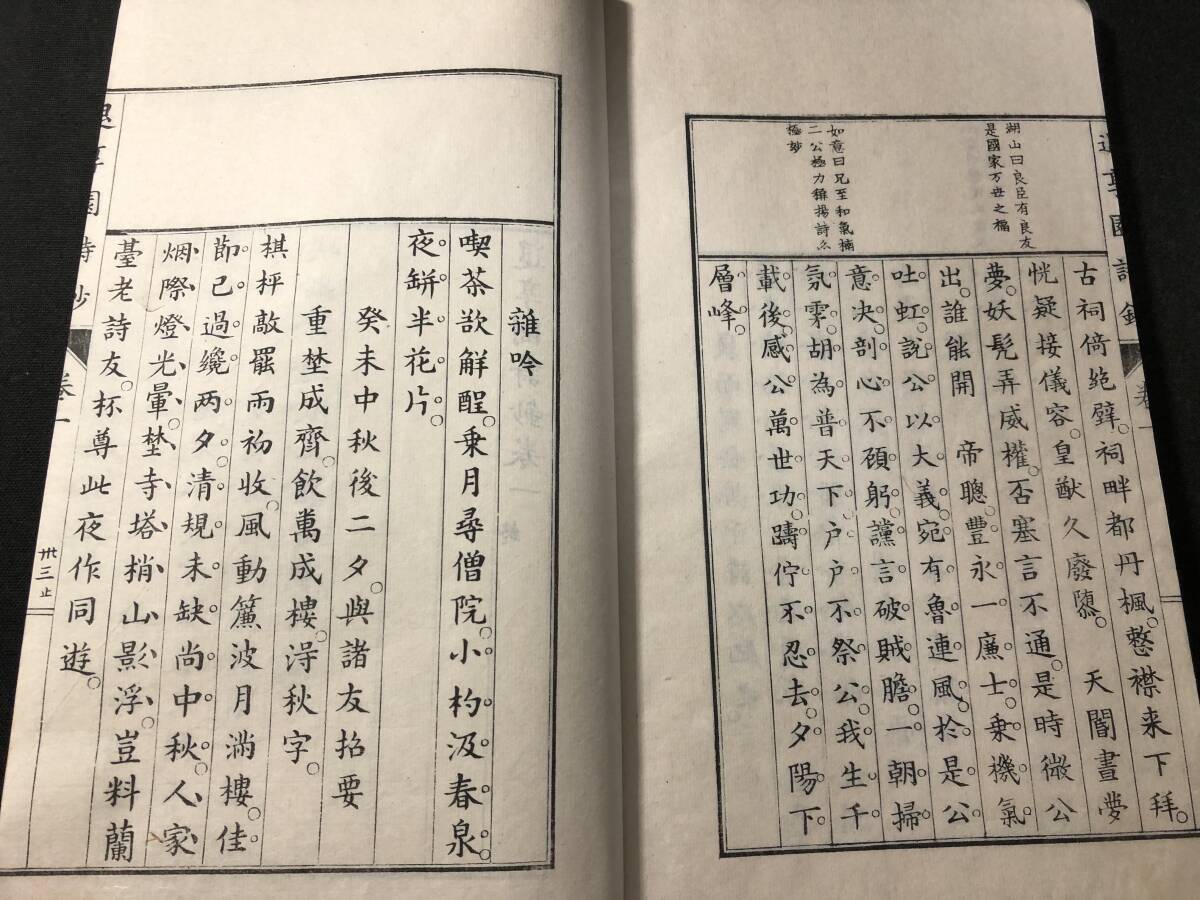 湖山曰良臣有良友
是國家万世之福
如意曰兄至和氣楠
二公極力雅揚詩亦
極妙
古祠倚絶壁祠畔都丹楓整襟来下拜
恍疑接儀容皇猷久廢隳 天閽晝夢
夢妖髡弄威權否塞言不通是時微公
出誰能開 帝聰豐永一廉士乗機氣
吐虹說公以大義宛有魯連風於是公
意决剖心不顧躬讜言破賊膽一朝掃
氛霧胡為普天下户户不祭公我生千
載後感公萬世功躊佇不忍去夕陽下
層峰
雜吟
喫茶欲解酲乗月尋僧院小杓汲春泉
夜缾半花片
癸未中秋後二夕與諸友招要
重埜成齋飲萬成樓淂秋字
棋枰敵罷雨初收風動簾波月滿樓佳
節已過纔两夕清規未缺尚中秋人家
烟際燈光暈埜寺塔梢山影浮豈料蘭
臺老詩友杯尊此夜作同遊
卷一
卅三止